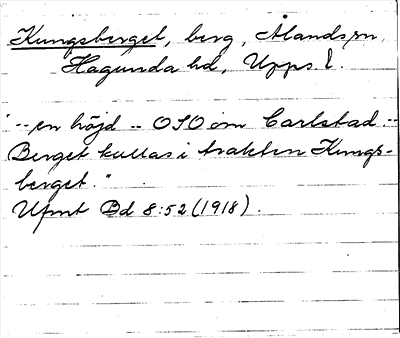 Kungsberget, berg, Ålands sn,
Hagunda hd, Upps l.
"-- en höjd -- OSO om Carlstad. --
Berget kallas i trakten Kungs-
berget."
Ufmt Bd 8:52 (1918).